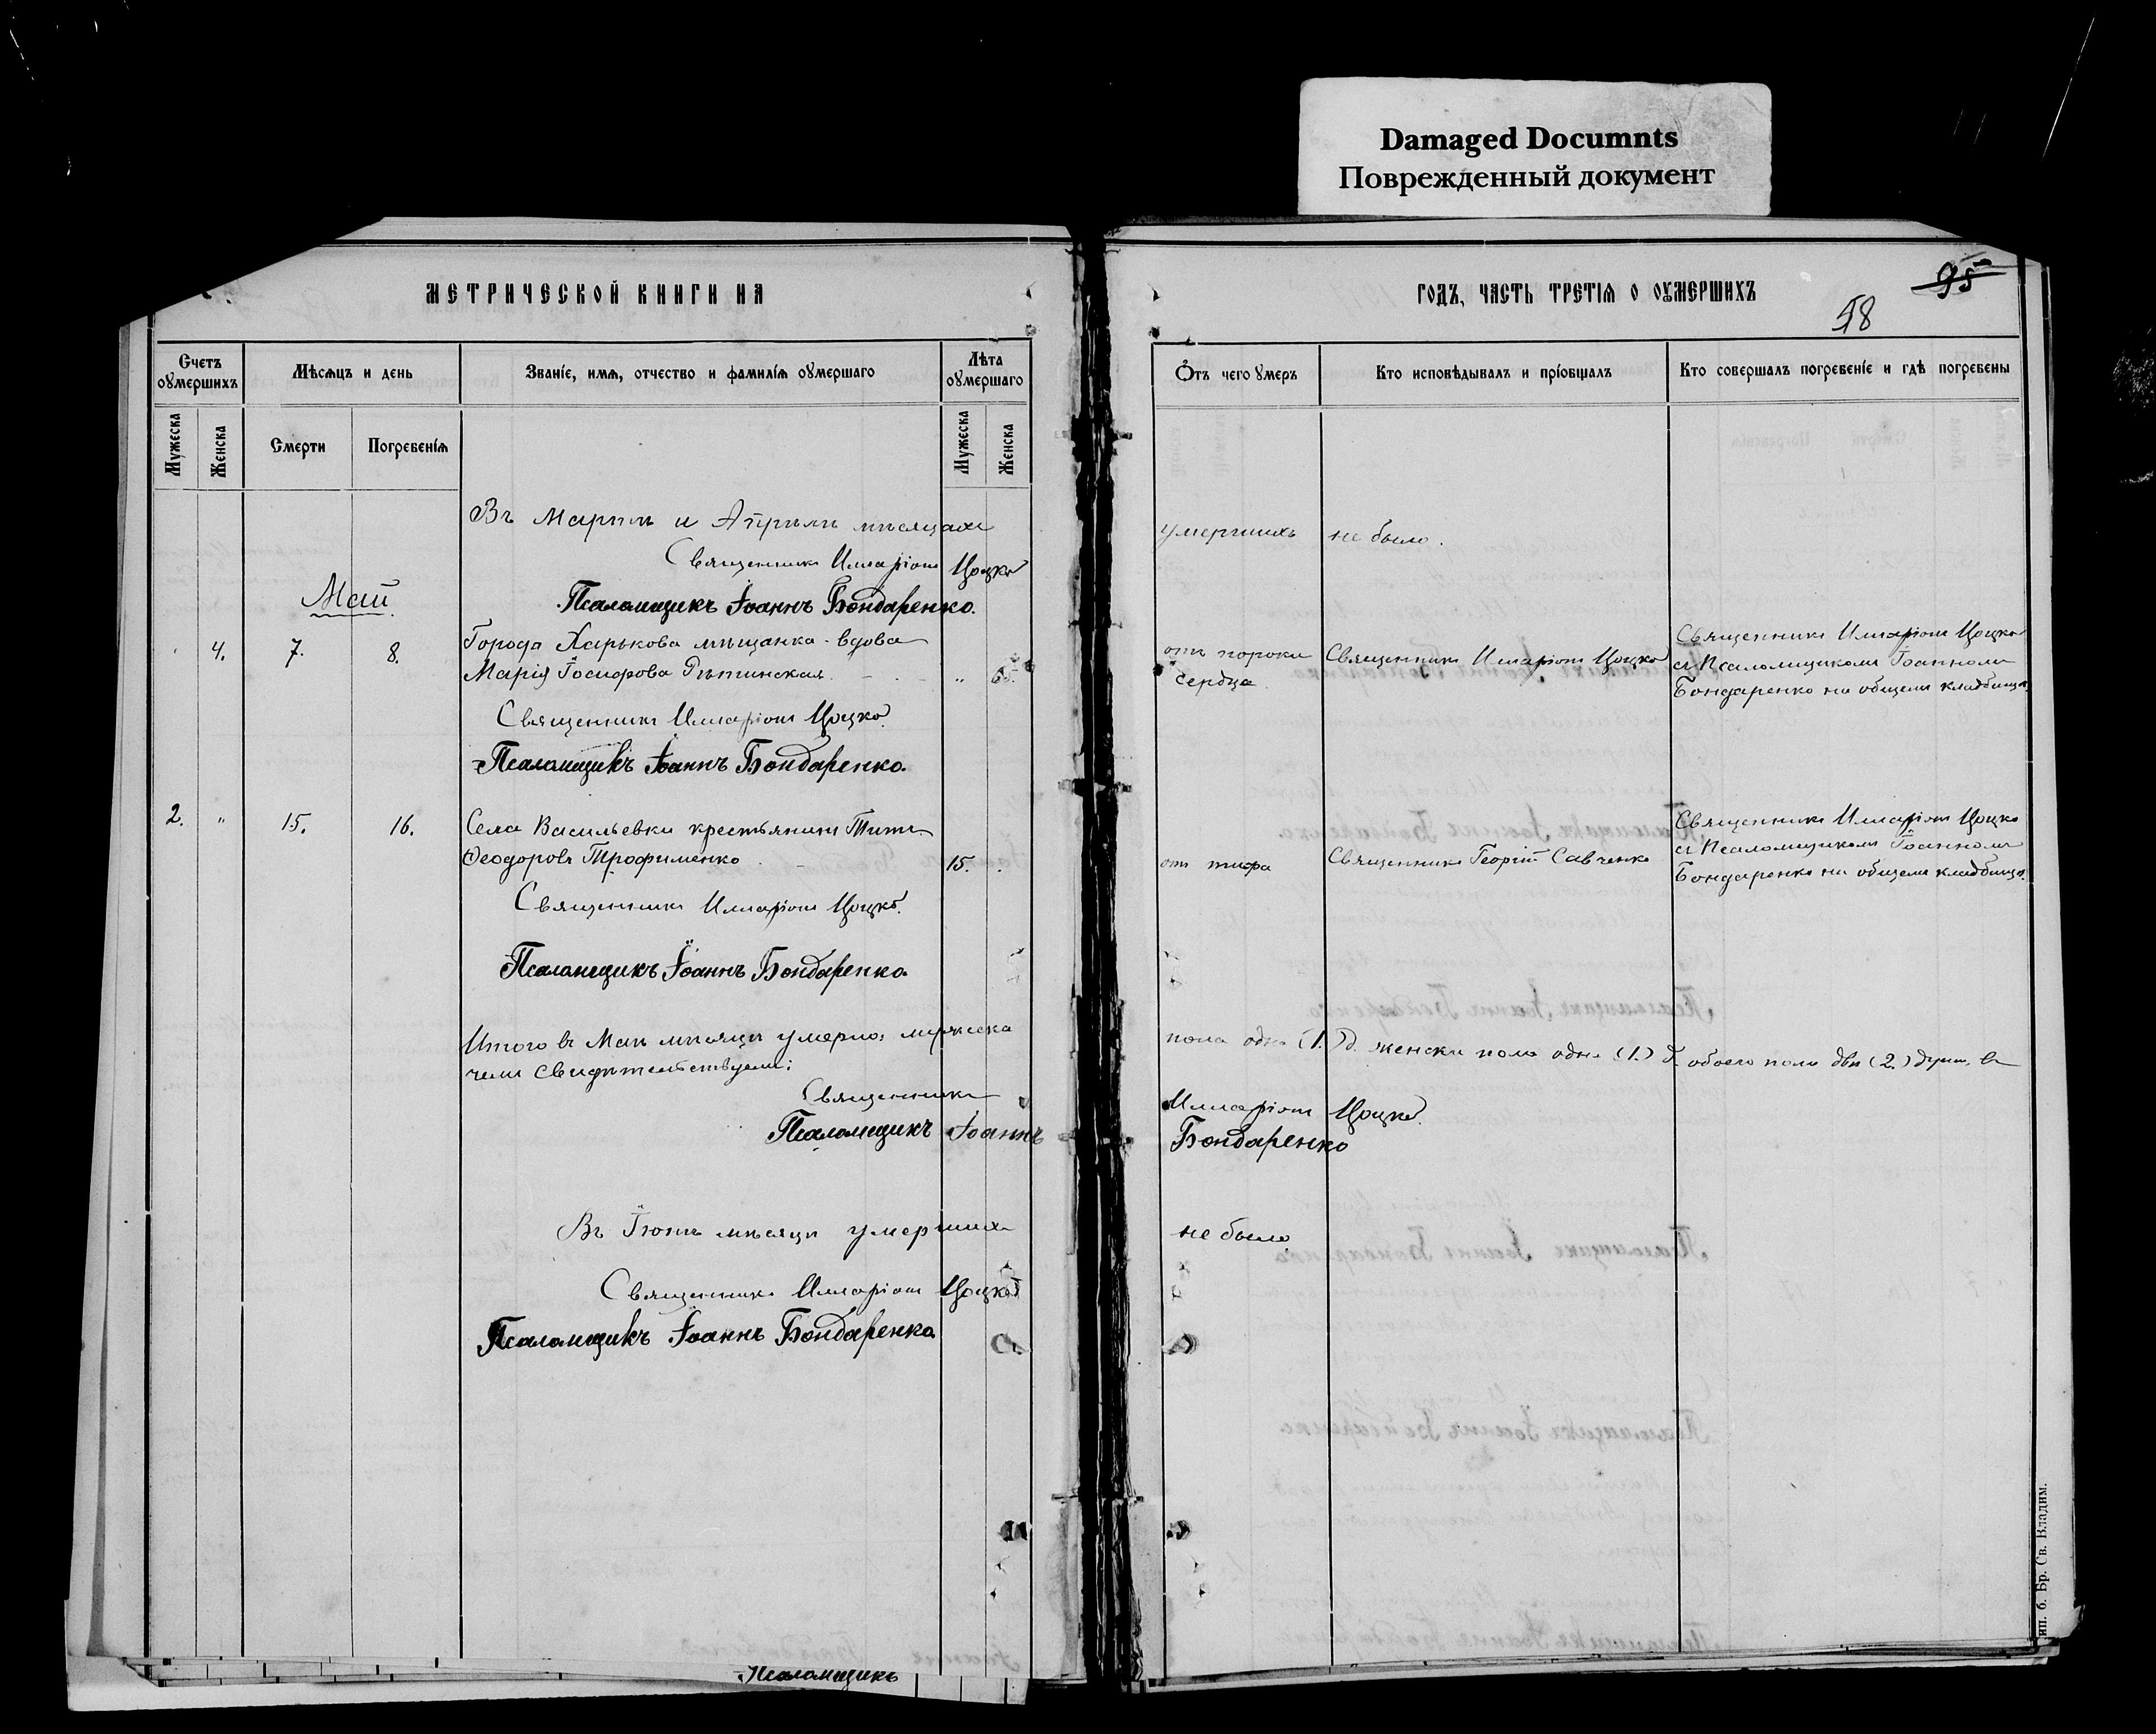 Damaged Documnts
Поврежденный документ
МЕТРИЧЕСКОЙ КНИГИ НА
ГОДЪ, ЧАСТЬ ТРЕТІЯ О ОУМЕРШИХЪ
95
58
Счетъ оумершихъ
Мѣсяцъ и день
Званіе, имя, отчество и фамилія оумершаго
Лѣта оумершаго
Отъ чего умеръ
Кто исповѣдывалъ и пріобщалъ
Кто совершалъ погребеніе и гдѣ погребены
Мужеска
Женска
Смерти
Погребенія
Мужеска
Женска
Въ Мартѣ и Апрѣлѣ мѣсяцахъ умершихъ не было.
Священникъ Илларіонъ Цоцко
Псаломщикъ Іоаннъ Бондаренко.
Май
4. 7. 8.
Города Харькова мѣщанка вдова
Марія Іосифова 65.
отъ порока
сердца
Священникъ Илларіонъ Цоцко
Священникъ Илларіонъ Цоцко
съ Псаломщикомъ Іоанномъ
Бондаренко на общемъ кладбищѣ.
Священникъ Илларіонъ Цоцко.
Псаломщикъ Іоаннъ Бондаренко.
2. " 15. 16.
Села Васильевки крестьянинъ Титъ
Ѳеодоровъ Трофименко 15.
отъ тифа
Священникъ Георгій Савченко
Священникъ Илларіонъ Цоцко
съ Псаломщикомъ Іоанномъ
Бондаренко на общемъ кладбищѣ.
Священникъ Илларіонъ Цоцко.
Псаломщикъ Іоаннъ Бондаренко
Итого въ Маѣ мѣсяцѣ умерло: мужеска пола одна (1.) д. женска пола одна (1.) д. обоего пола двѣ (2.) души, въ
чемъ свидѣтельствуемъ:
Священникъ Илларіонъ Цоцко.
Псаломщикъ Іоаннъ Бондаренко
Въ Іюнѣ мѣсяцѣ умершихъ не было.
Священникъ Илларіонъ Цоцко
Псаломщикъ Іоаннъ Бондаренко
Псаломщикъ
ип. б. Бр. Св. Владим.